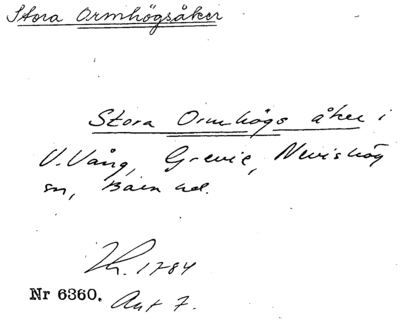 Stora Ormhögsåker
Stora Ormhögs åker i
V. Vång, Grevie, Nevishög
sn, Bara hd.
Lh. 1784
Nr 6360. Akt 7.